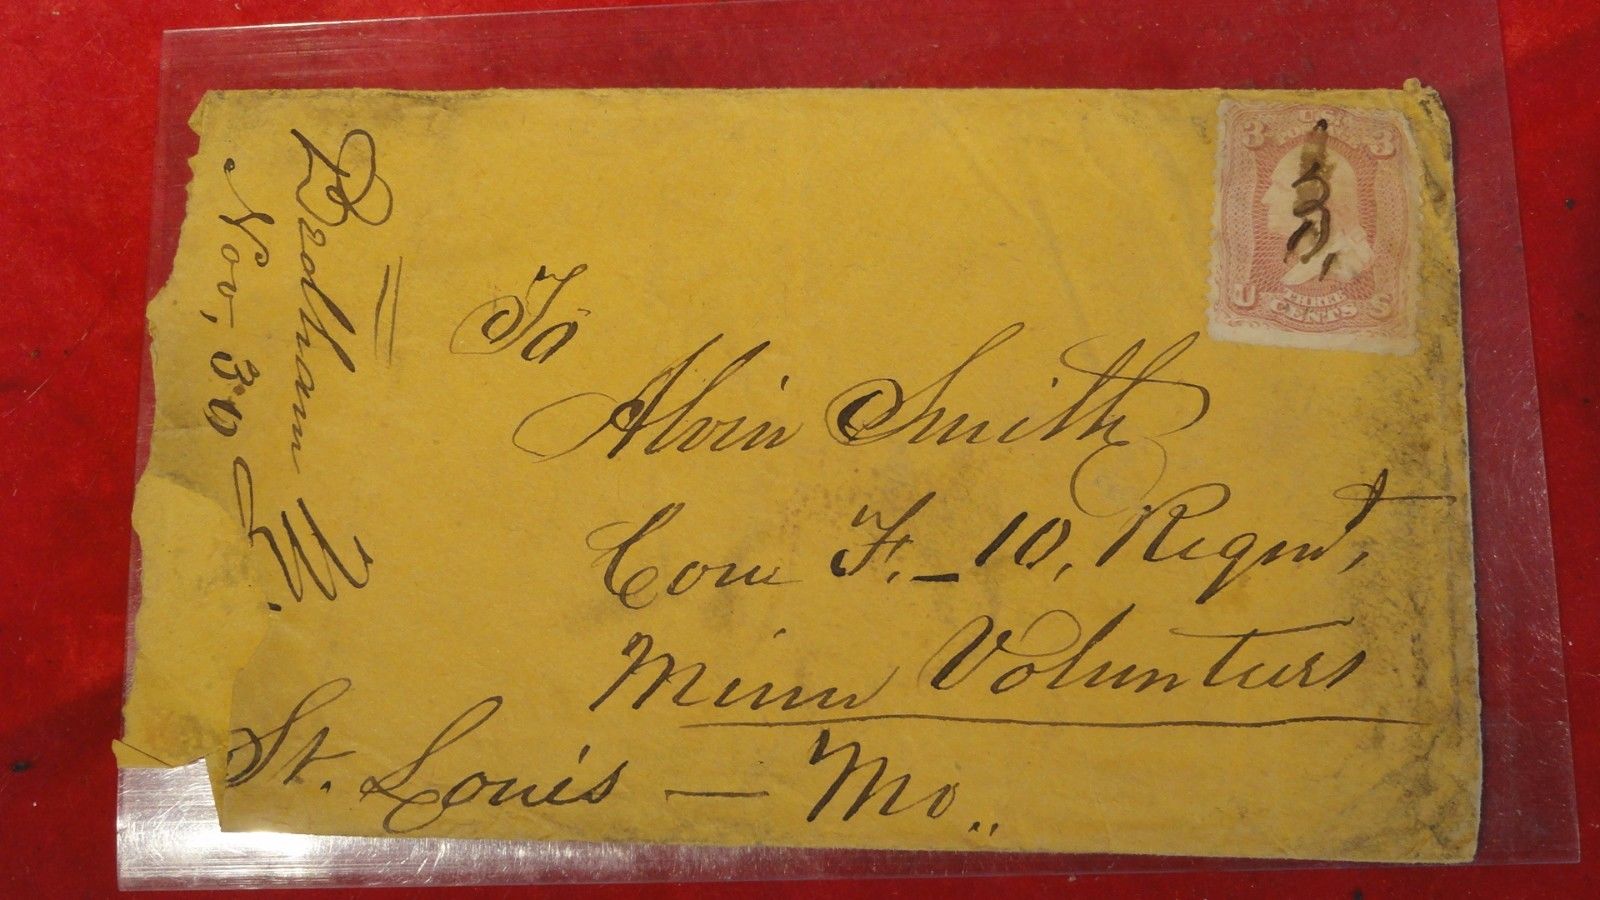 Bradham N. Y.
Nov, 30
To
Alvin Smith
Com F. - 10, Regmt,
Minn Volunteers
St. Louis — Mo..
3 3
U THREE S
CENTS